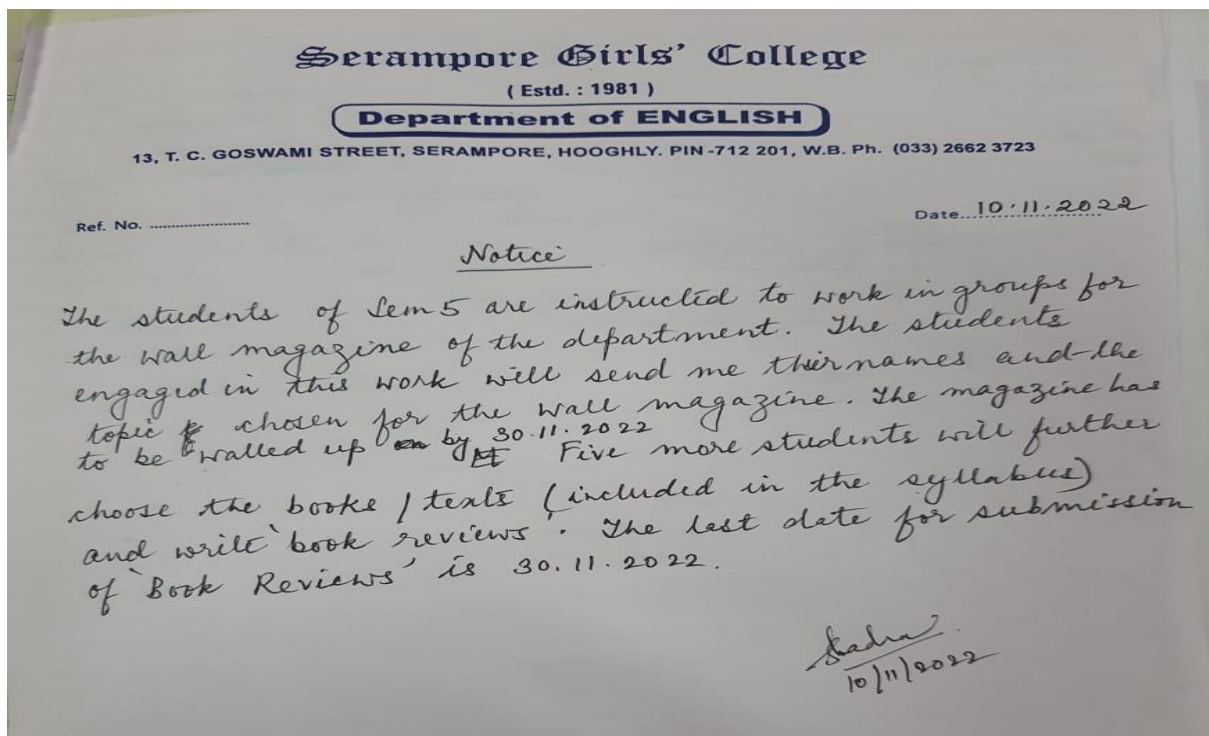 Serampore Girls' College
( Estd. : 1981 )
Department of ENGLISH
13, T. C. GOSWAMI STREET, SERAMPORE, HOOGHLY. PIN -712 201, W.B. Ph. (033) 2662 3723
Ref. No. ........................
Date...10.11.2022
Notice
The students of Sem 5 are instructed to work in groups for
the wall magazine of the department. The students
engaged in this work will send me their names and the
topic chosen for the wall magazine. The magazine has
to be walled up by 30.11.2022 Five more students will further
choose the books / texts (included in the syllabus)
and write 'book reviews'. The last date for submission
of 'Book Reviews' is 30.11.2022.
10/11/2022